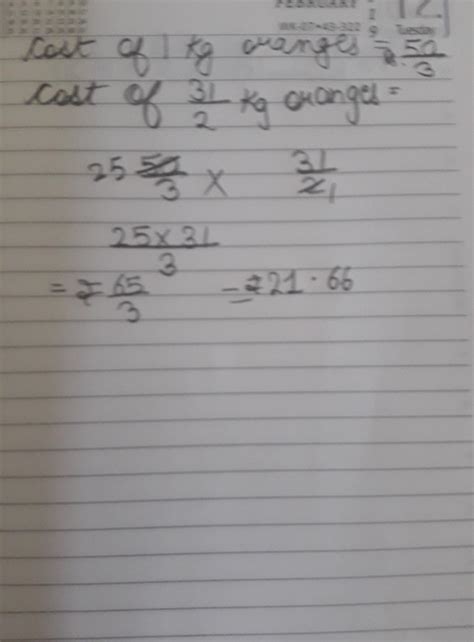 FEBRUARY
WK-07•43-322
12
Tuesday
Cost of 1 kg oranges = ₹ 50/3
Cost of 31/2 kg oranges =
25 50/3 × 31/2 1
25×31/3
= ₹ 65/3 = ₹21.66